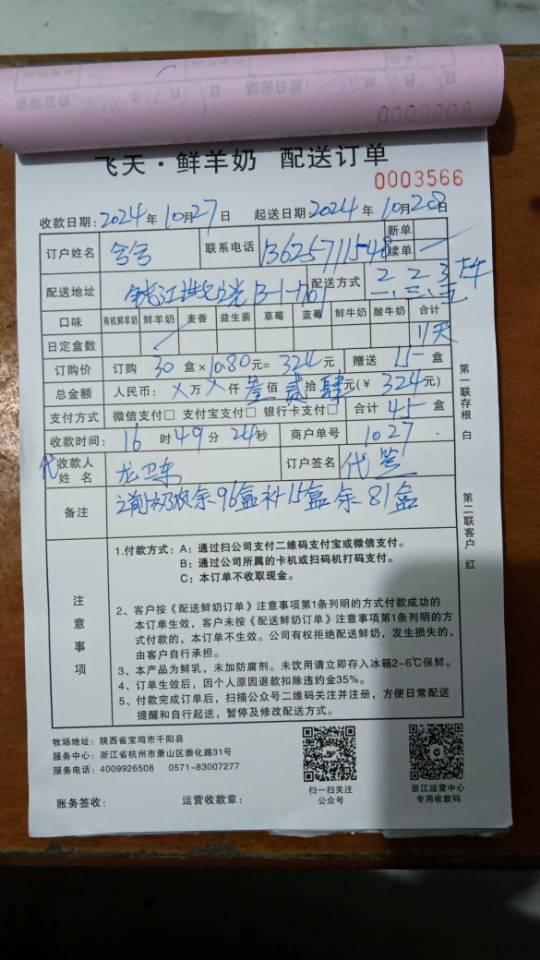 0003566
飞天·鲜羊奶 配送订单
0003566
收款日期:2024年10月27日 起送日期:2024年10月28日
订户姓名 兮兮 联系电话 13625711548 新单 续单
配送地址 钱江世纪之光 13-1-1101 配送方式 上午
口味 有机鲜羊奶 鲜羊奶 麦香 益生菌 草莓 蓝莓 鲜牛奶 酸牛奶 合计
日定盒数 1/天
订购价 订购 30 盒×10.80元=324元 赠送 15 盒
总金额 人民币:X万X仟叁佰贰拾肆元(¥ 324元)
支付方式 微信支付□ 支付宝支付□ 银行卡支付□ 合计 45 盒
收款时间:16时49分24秒 商户单号 1027
代收款人姓名 龙卫东 订户签名 代签
备注 之前奶收余96盒补15盒 余81盒
注意事项
1.付款方式:A:通过扫公司支付二维码支付宝或微信支付。
B:通过公司所属的卡机或扫码机打码支付。
C:本订单不收取现金。
2、客户按《配送鲜奶订单》注意事项第1条列明的方式付款成功的
本订单生效,客户未按《配送鲜奶订单》注意事项第1条列明的方
式付款的,本订单不生效。公司有权拒绝配送鲜奶,发生损失的,
由客户自行承担。
3、本产品为鲜乳,未加防腐剂。未饮用请立即存入冰箱2~6℃保鲜。
4、订单生效后,因个人原因退款扣除违约金35%。
5、付款完成订单后,扫描公众号二维码关注并注册,方便日常配送
提醒和自行起送,暂停及修改配送方式。
第一联存根 白
第二联客户 红
牧场地址:陕西省宝鸡市千阳县
服务中心:浙江省杭州市萧山区崇化路31号
服务电话:4009926508 0571-83007277
扫一扫关注
公众号
浙江运营中心
专用收款码
账务签收: 运营收款章: